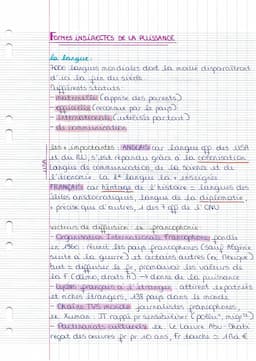 FORMES INDIRECTES DE LA PUISSANCE
La langue:
7000 langues mondiales dont la moitié disparaîtront
d'ici la fin du siècle.
Différents statuts:
- maternelle (apprise des parents)
- officielle (reconnue par le pays)
- internationale (utilisée partout)
- de communication
les + importantes: ANGLAIS car langue off des USA
et du RU, s'est répandu grâce à la colonisation,
langue de communication, de la science et de
l'économie. La 1ère langue la + enseignée
FRANÇAIS car héritage de l'histoire = langues des
élites aristocratiques, langue de la diplomatie,
+ précise que d'autres, 1 des 7 off de l'ONU
vecteurs de diffusion: la francophonie
- Organisation Internationale Francophonie, fondée
en : réunit les pays francophones (sauf Algérie
suite à la guerre) et certains autres (ex
but = diffuser le fr, promouvoir les valeurs de
la F (démo, droits H) → dans de la puissance
- Lycées français à l'étranger: attirent expatriés
et riches étrangers, pays dans le monde
- Chaîne TV5 monde : journalistes francophones,
- Partenariats culturels : ex. Le Louvre Abu-Dhabi
reçoit des œuvres fr pr 30 ans, Fr touche = 1 Md €